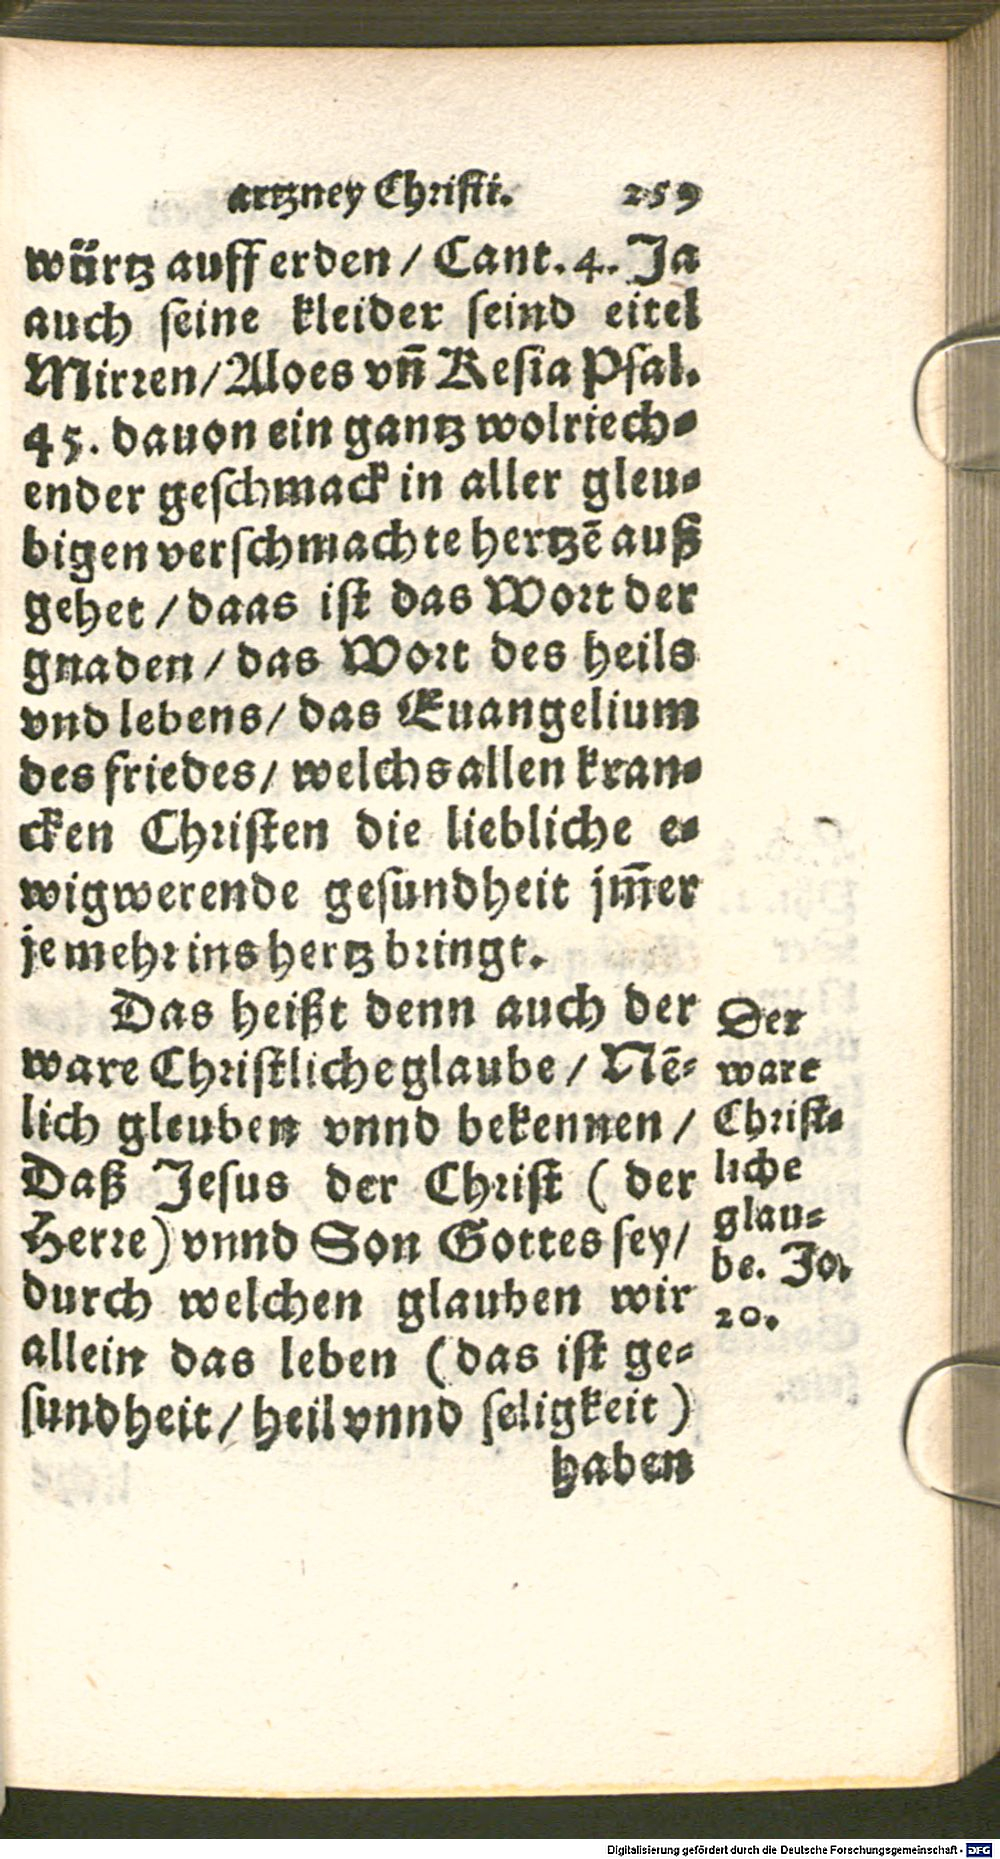 artzney Christi. 259
würtz auff erden / Cant. 4. Ja
auch seine kleider seind eitel
Mirren / Aloes vn̄ Kesia Psal.
45. dauon ein gantz wolriech-
ender geschmack in aller gleu-
bigen verschmachte hertzē auß
gehet / daas ist das Wort der
gnaden / das Wort des heils
vnd lebens / das Euangelium
des friedes / welchs allen kran-
cken Christen die liebliche e-
wigwerende gesundheit jm̄er
je mehr ins hertz bringt.
Das heißt denn auch der
ware Christliche glaube / Nē-
lich gleuben vnnd bekennen /
Daß Jesus der Christ ( der
Herre ) vnnd Son Gottes sey /
durch welchen glauben wir
allein das leben ( das ist ge-
sundheit / heil vnnd seligkeit )
haben
Der
ware
Christ-
liche
glau-
be. Jo.
20.
Digitalisierung gefördert durch die Deutsche Forschungsgemeinschaft - DFG